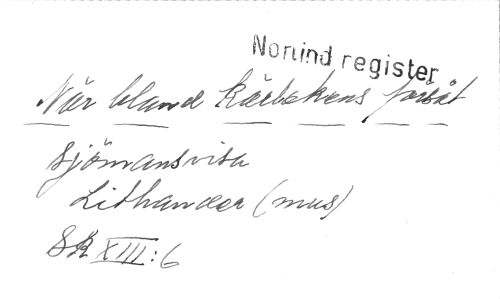 Norlind register
När bland kärlekens försåt
Sjömansvisa
Lithander (mus)
SR XIII:6